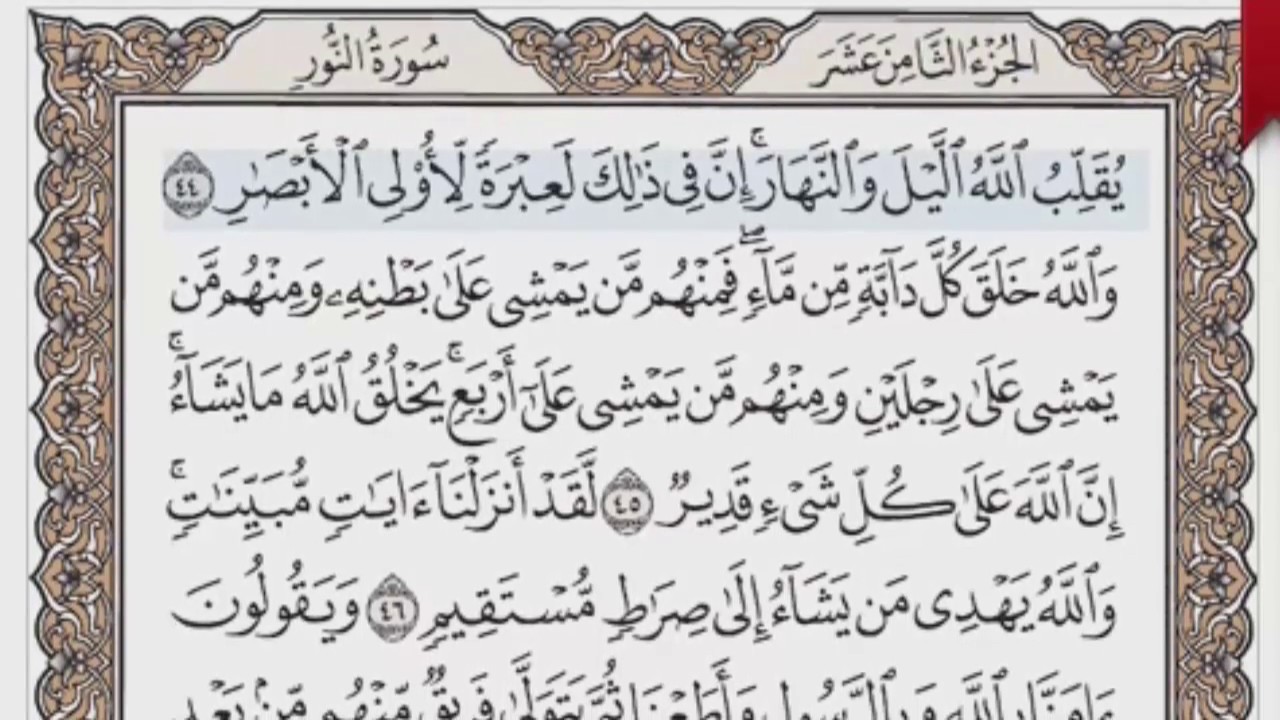 الجُزْءُ الثَّامِنَ عَشَرَ سُورَةُ النُّورِ
يُقَلِّبُ ٱللَّهُ ٱلَّيْلَ وَٱلنَّهَارَۚ إِنَّ فِى ذَٰلِكَ لَعِبْرَةً لِّأُو۟لِى ٱلْأَبْصَٰرِ ٤٤
وَٱللَّهُ خَلَقَ كُلَّ دَآبَّةٍ مِّن مَّآءٍۖ فَمِنْهُم مَّن يَمْشِى عَلَىٰ بَطْنِهِۦ وَمِنْهُم مَّن
يَمْشِى عَلَىٰ رِجْلَيْنِ وَمِنْهُم مَّن يَمْشِى عَلَىٰٓ أَرْبَعٍۚ يَخْلُقُ ٱللَّهُ مَا يَشَآءُۚ
إِنَّ ٱللَّهَ عَلَىٰ كُلِّ شَىْءٍ قَدِيرٌ ٤٥ لَّقَدْ أَنزَلْنَآ ءَايَٰتٍ مُّبَيِّنَٰتٍۚ
وَٱللَّهُ يَهْدِى مَن يَشَآءُ إِلَىٰ صِرَٰطٍ مُّسْتَقِيمٍ ٤٦ وَيَقُولُونَ
ءَامَنَّا بِٱللَّهِ وَبِٱلرَّسُولِ وَأَطَعْنَا ثُمَّ يَتَوَلَّىٰ فَرِيقٌ مِّنْهُم مِّنۢ بَعْدِ